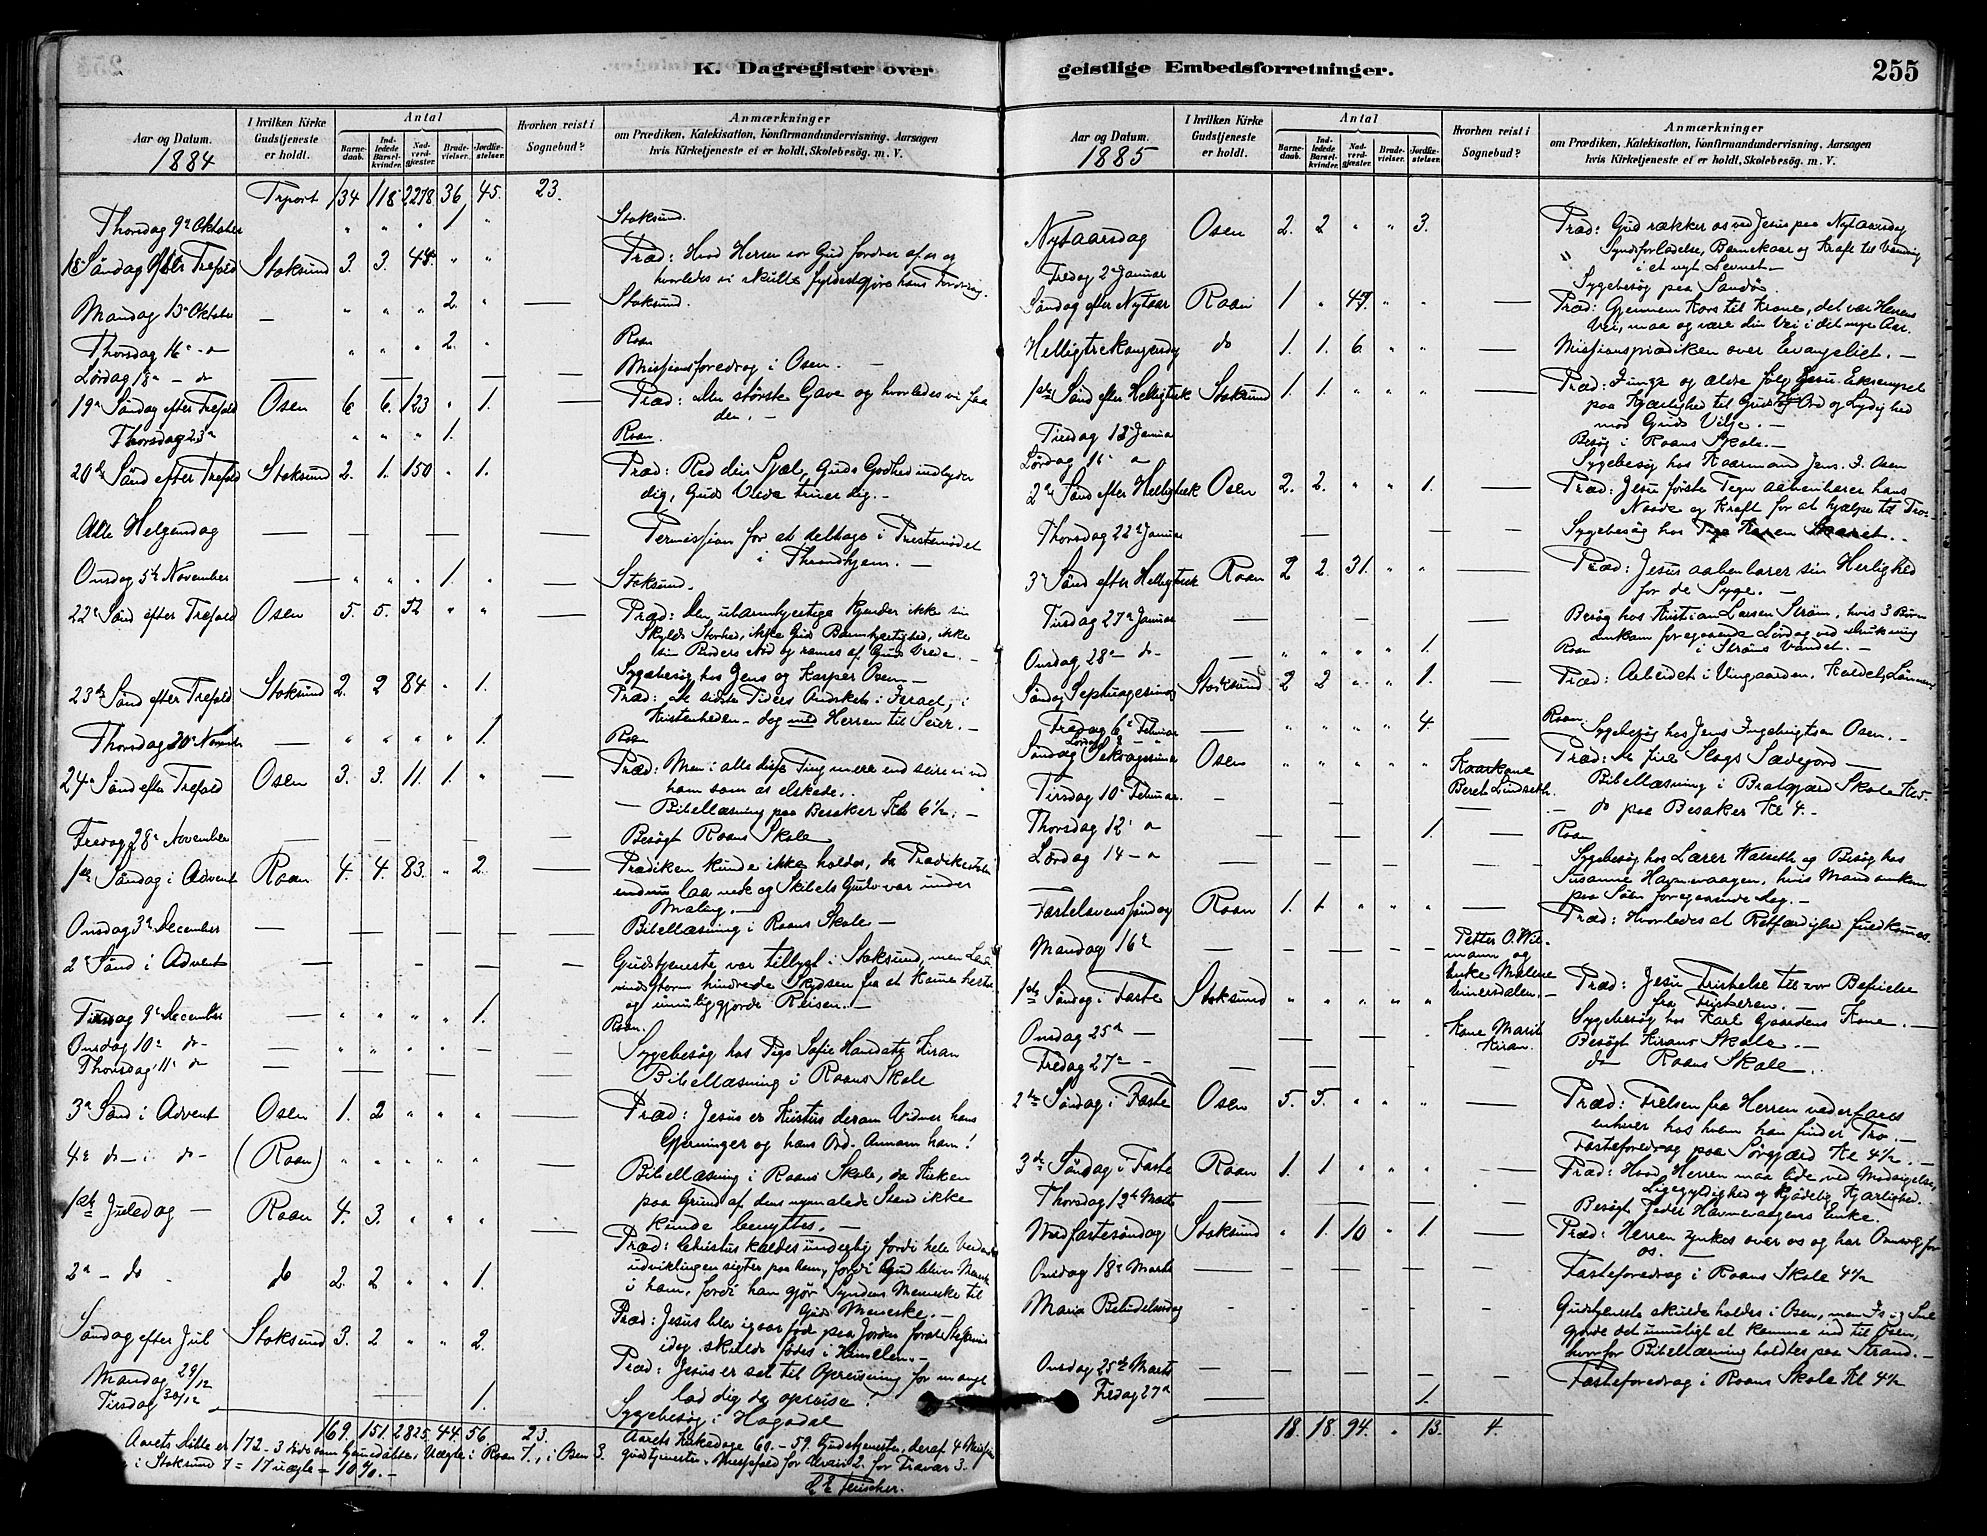 K. Dagregister over
Aar og Datum.
1884
I hvilken Kirke Gudstjeneste er holdt.
Antal
Barne-daab.
Ind-ledede Barsel-kvinder.
Nad-verd-gjæster.
Brude-vielser.
Jordfæ-stelser.
Hvorhen reist i Sognebud?
Anmærkninger
om Prædiken, Katekisation, Konfirmandundervisning, Aarsagen
hvis Kirketjeneste ei er holdt, Skolebesög. m. V.
Trport 134 118 2278 36 45. 23.
Thorsdag 9de Oktober " " " 1 " Stoksund.
18 Söndag efter Trefold Stoksund 3. 3. 44. " " Præd: Hvad Herren vor Gud fordrer af os og
hvorledes vi skulle fyldestgjøre hans Fordring.
Mandag 13de Oktober — " " " 2. " — Stoksund.
Thorsdag 16de - do " " " 2. " Roan
Lördag 18de - do — Missionsforedrag i Osen. —
19de Söndag efter Trefold Osen 6 6. 123 " 1. — Præd: den störste Gave og hvorledes vi faa
den. —
Thorsdag 23de " " " 1. Roan.
20de Sönd efter Trefold Stoksund 2. 1. 150 " 1. Præd: Red din Sjæl, Guds Godhed indbyder
dig, Guds Vrede truer dig. —
Alle Helgendag — Permission for at deltage i Præstemödet
i Throndhjem. —
Onsdag 5te November — " " " 1. " — Stoksund.
22de Sönd efter Trefold Osen 5. 5. 52 " " — Præd: Den ubarmhjertige kjender ikke sin
Skylds Storhed, ikke Guds Barmhjertighed, ikke
sin Broders Nöd og rames af Guds Vrede. —
Sygebesög hos Jens og Kasper Osen —
23de Sönd efter Trefold Stoksund 2. 2 84 " 1. — Præd: de sidste Tiders Ondskab i Israel, i
Kristenheden – dog med Herren til Seier. —
Thorsdag 20de Novembr — " " " " 1. Roan
24de Sönd efter Trefold Osen 3. 3. 11. 1. " — Præd: Men i alle disse Ting mere end seire vi ved
ham som os elskede.
— Bibellæsning paa Besaker Kl 6½. —
Fredag 28de November — Besögt Roans Skole
1ste Söndag i Advent Roan 4. 4. 83. " 2. — Prædiken kunde ikke holdes, da Prædikestolen
endnu laa nede og Skibets Gulv var under
Maling. —
Onsdag 3de December — Bibellæsning i Roans Skole —
2de Sönd i Advent — Gudstjeneste var tillyst i Stoksund, men
Storm hindrede Skydsen fra at komme
og umuliggjorde Reisen. —
Tirsdag 9de December " " " " 1. Roan.
Onsdag 10de do — Sygebesög hos Pige Sofie Kiran
Thorsdag 11te do — Bibellæsning i Roans Skole
3de Sönd i Advent Osen 1. 2 " " " — Præd: Jesus er Kristus derom Vidner hans
Gjerninger og hans Ord. Annam ham!
4de do - i do - (Roan) " " " " " — Bibellæsning i Roans Skole, da Kirken
paa Grund af dens nymalede Stand ikke
kunde benyttes. —
1ste Juledag — Roan 4. 3. " " " — Præd: Christus kaldes underlig fordi hele Verdens
udviklingen sigter paa ham, fordi Gud bliver Mensk
i ham, fordi han gjør Syndens Menneske til
Guds Menneske. —
2de - do - do 2. 2 " " 1. Præd: Jesus blev igaar född paa Jorden forat Stefanus
idag skulde födes i Himmelen. —
Söndag efter Jul Stoksund 3. 2 " " 2. Præd: Jesus er sat til Opreisning for mange
lad dig da opreise!
Mandag 29/12
Tirsdag 30/12 — 1. Sygebesög i Hagadal
169. 151. 2825. 44. 56. 23.
Aarets Döbte er 172 – 3 döde som hjemmedöbte. Uægte i Roan 7., i Osen 3.
i Stoksund 7 = 17 uægte = 10%. —
Aarets Kirkedage 60. – 59. Gudstjenester, deraf 4 Missions
gudstjenester. Messefald for 2. for Fravær 3.
geistlige Embedsforretninger.
255
Aar og Datum.
1885
I hvilken Kirke Gudstjeneste er holdt.
Antal
Barne-daab.
Ind-ledede Barsel-kvinder.
Nad-verd-gjæster.
Brude-vielser.
Jordfæ-stelser.
Hvorhen reist i Sognebud?
Anmærkninger
om Prædiken, Katekisation, Konfirmandundervisning, Aarsagen
hvis Kirketjeneste ei er holdt, Skolebesög. m. V.
Nytaarsdag Osen 2. 2 " " 3. Præd: Gud rækker os ved Jesus paa Nytaarsdag
Syndsforladelse, Barnekaar og Kraft til Vandring
i et nyt Levnet —
Fredag 2de Januar Sygebesög paa Sandö.
Söndag efter Nytaar Roan 1 " 47. " " — Præd: Gjennem Kors til Krone, det var Herrens
Vei, maa og være din Vei i det nye Aar.
Helligtrekongersdag do 1. 1. 6. " " — Missionsprædiken over Evangeliet. —
1ste Sönd efter Helligtrek Stoksund 1. 1. " " " — Præd: Junge og ældre fölg Jesu Exempel
paa Kjærlighed til Guds Ord og Lydighed
mod Guds Vilje. —
Tirsdag 13de Januar Besög i Roans Skole. —
Lördag Sygebesög hos Kaarmand Jens. J. Osen
2de Sönd efter Helligtrek Osen 2. 2. " " 1. — Præd: Jesu förste Tegn aabenbarer hans
Naade og Kraft for at hjælpe til Tro. —
Thorsdag 22de Januar — Sygebesög hos Pige Karen
3de Sönd efter Helligtrek Roan 2 2. 31. " " — Præd: Jesus aabenbarer sin Herlighed
for de Syge. —
Tirsdag 27de Januar — Besög hos Kristian Larsen Ström, hvis 3 Börn
omkom foregaaende Lördag ved drukning
i Ströms Vandet. —
Onsdag 28de do — " " " " 1. Roan
Söndag Septuagesima Stoksund 2 2 " " 1. — Præd: Arbeidet i Vingaarden. Kaldet, Lönnen
Fredag 6te Februar " " " " 4. Roan.
Lördag Sygebesög hos Jens Ingebrigtsen Osen. —
Söndag Seksagesima Osen " " " " " Kaarkone
Beret Lindseth. Præd: De fire Slags Sædejord —
Tirsdag 10de Februar. — Bibellæsning i Bratgjærd Skole Kl 5.
Thorsdag 12te do — 1. — do paa Besaker Kl 4. —
Roan
Lördag 14 - do — Sygebesög hos Lærer Walseth og Besög hos
Susanna Havnevaagen, hvis Mand omkom
paa Söen foregaaende dag. —
Fastelavens Söndag Roan 1. 1. " " " Præd: Hvorledes al Retfærdighed fuldkommes.
Mandag 16de — Petter O. Wil-
mann og
Enke Malene
Einersdalen. —
1ste Söndag i Faste Stoksund " " " " " Præd: Jesu Fristelse til vor Befrielse
fra Fristeren. —
Onsdag 25de — Kone Marit
Kiran. Sygebesög hos Karl Gaardens Kone. —
Besögt Kirans Skole. —
Fredag 27de — do Roans Skole.
2den Söndag i Faste Osen 5. 5. " " " — Præd: Frelsen fra Herren vederfares
enhver hos hvem han finder Tro. —
Fasteforedrag paa Sörgjærd Kl 4½. —
3de Söndag i Faste Roan 1. 1 " " " — Præd: Hvad Herren maa lide ved Modsigelse,
Ligegyldighed og kjödelig Kjærlighed.
Thorsdag 12te Marts — Besögt Peder Havnevaagens Enke.
Midfastesöndag Stoksund " 1. 10 " 1. Præd: Herren ynkes over os og har Omsorg for
os. —
Onsdag 18de Marts — Fasteforedrag i Roans Skole 4½
Maria Bebudelsesdag — Gudstjeneste skulde holdes i Osen, men Is og Snee
gjorde det umuligt at komme ind til Osen,
hvorfor Bibellæsning holdtes paa Strand. —
Onsdag 25de Marts — Fasteforedrag i Roans Skole Kl 4½
Fredag 27de — 1.
18. 18. 94. " 13. 4.